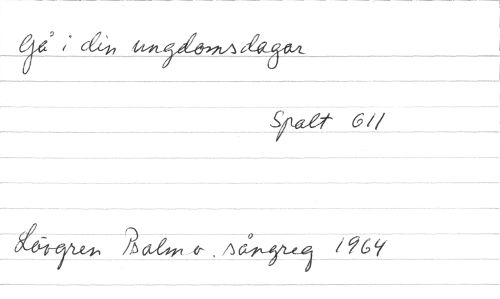 Gå i din ungdomsdagar
Spalt 611
Lövgren Psalm o. sångreg 1964